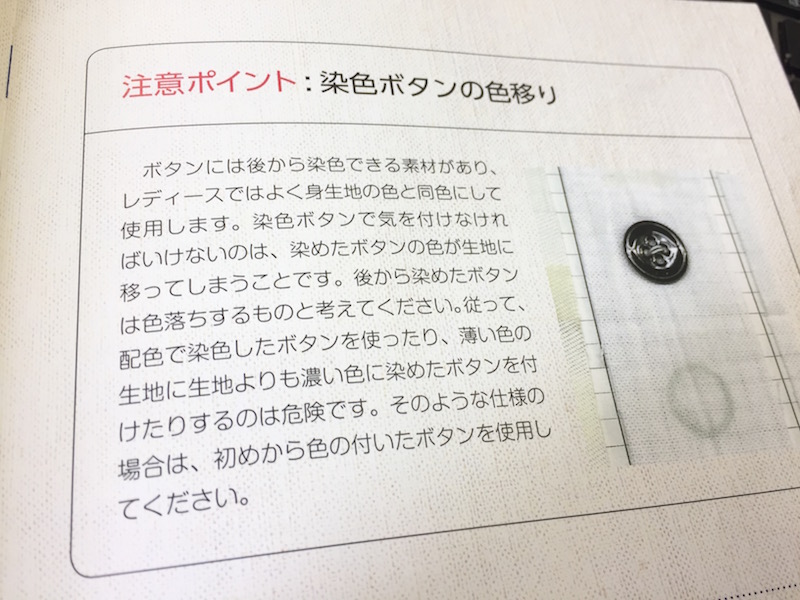 注意ポイント:染色ボタンの色移り
ボタンには後から染色できる素材があり、
レディースではよく身生地の色と同色にして
使用します。染色ボタンで気を付けなけれ
ばいけないのは、染めたボタンの色が生地に
移ってしまうことです。後から染めたボタン
は色落ちするものと考えてください。従って、
配色で染色したボタンを使ったり、薄い色の
生地に生地よりも濃い色に染めたボタンを付
けたりするのは危険です。そのような仕様の
場合は、初めから色の付いたボタンを使用し
てください。